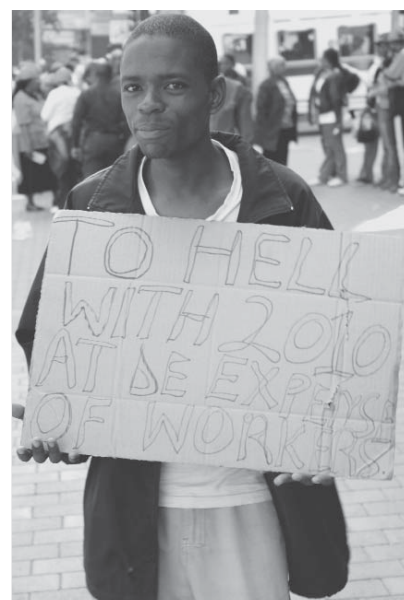 TO HELL
WITH 2010
AT DE EXPENSE
OF WORKERS